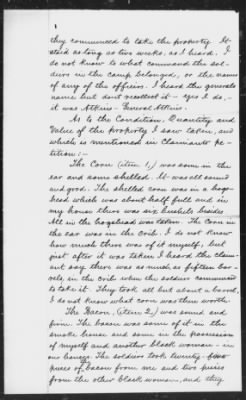 they commenced to take the property. It
staid as long as two weeks, as I heard. I
do not know to what command the sol-
diers in the camp belonged, or the names
of any of the officers. I heard the generals
name but dont recollect it – yes I do,
it was Atkins – General Atkins.
As to the Condition, Quantity and
Value of the property I saw taken, and
which is mentioned in Claimants Pe-
tition:–
The Corn (item 1,) was some in the
ear and some shelled. It was all sound
and good. The shelled corn was in a hogs-
head which was about half full and in
my house there was six bushels besides
All in the hogshead was taken. The Corn in
the ear was in the crib. I do not know
how much there was of it myself, but
just after it was taken I heard the claim-
ant say there was as much as fifteen bar-
rels, in the crib when the soldiers commenced
to take it. They took all but about a barrel,
I do not know what corn was then worth.
The Bacon, (item 2,) was sound and
firm. The bacon was some of it in the
smoke house and some in the possession
of myself and another black woman – in
our houses. The soldiers took twenty-four
pieces of bacon from me and two pieces
from the other black woman, and they